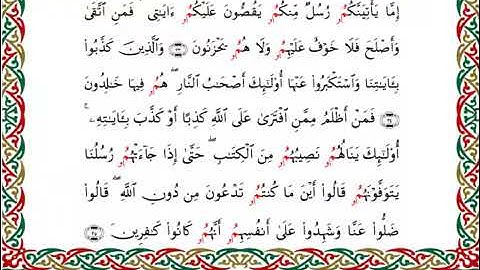 إِمَّا يَأْتِيَنَّكُمُۥ رُسُلٌ مِّنكُمُۥ يَقُصُّونَ عَلَيْكُمُۥ ءَايَٰتِى فَمَنِ ٱتَّقَىٰ
وَأَصْلَحَ فَلَا خَوْفٌ عَلَيْهِمُۥ وَلَا هُمُۥ يَحْزَنُونَ وَٱلَّذِينَ كَذَّبُوا۟
بِـَٔايَٰتِنَا وَٱسْتَكْبَرُوا۟ عَنْهَا أُو۟لَٰٓئِكَ أَصْحَٰبُ ٱلنَّارِ ۖ هُمُۥ فِيهَا خَٰلِدُونَ
فَمَنْ أَظْلَمُ مِمَّنِ ٱفْتَرَىٰ عَلَى ٱللَّهِ كَذِبًا أَوْ كَذَّبَ بِـَٔايَٰتِهِۦٓ ۚ
أُو۟لَٰٓئِكَ يَنَالُهُمُۥ نَصِيبُهُمُۥ مِنَ ٱلْكِتَٰبِ ۖ حَتَّىٰٓ إِذَا جَآءَتْهُمُۥ رُسُلُنَا
يَتَوَفَّوْنَهُمُۥ قَالُوٓا۟ أَيْنَ مَا كُنتُمُۥ تَدْعُونَ مِن دُونِ ٱللَّهِ ۖ قَالُوا۟
ضَلُّوا۟ عَنَّا وَشَهِدُوا۟ عَلَىٰٓ أَنفُسِهِمُۥٓ أَنَّهُمُۥ كَانُوا۟ كَٰفِرِينَ